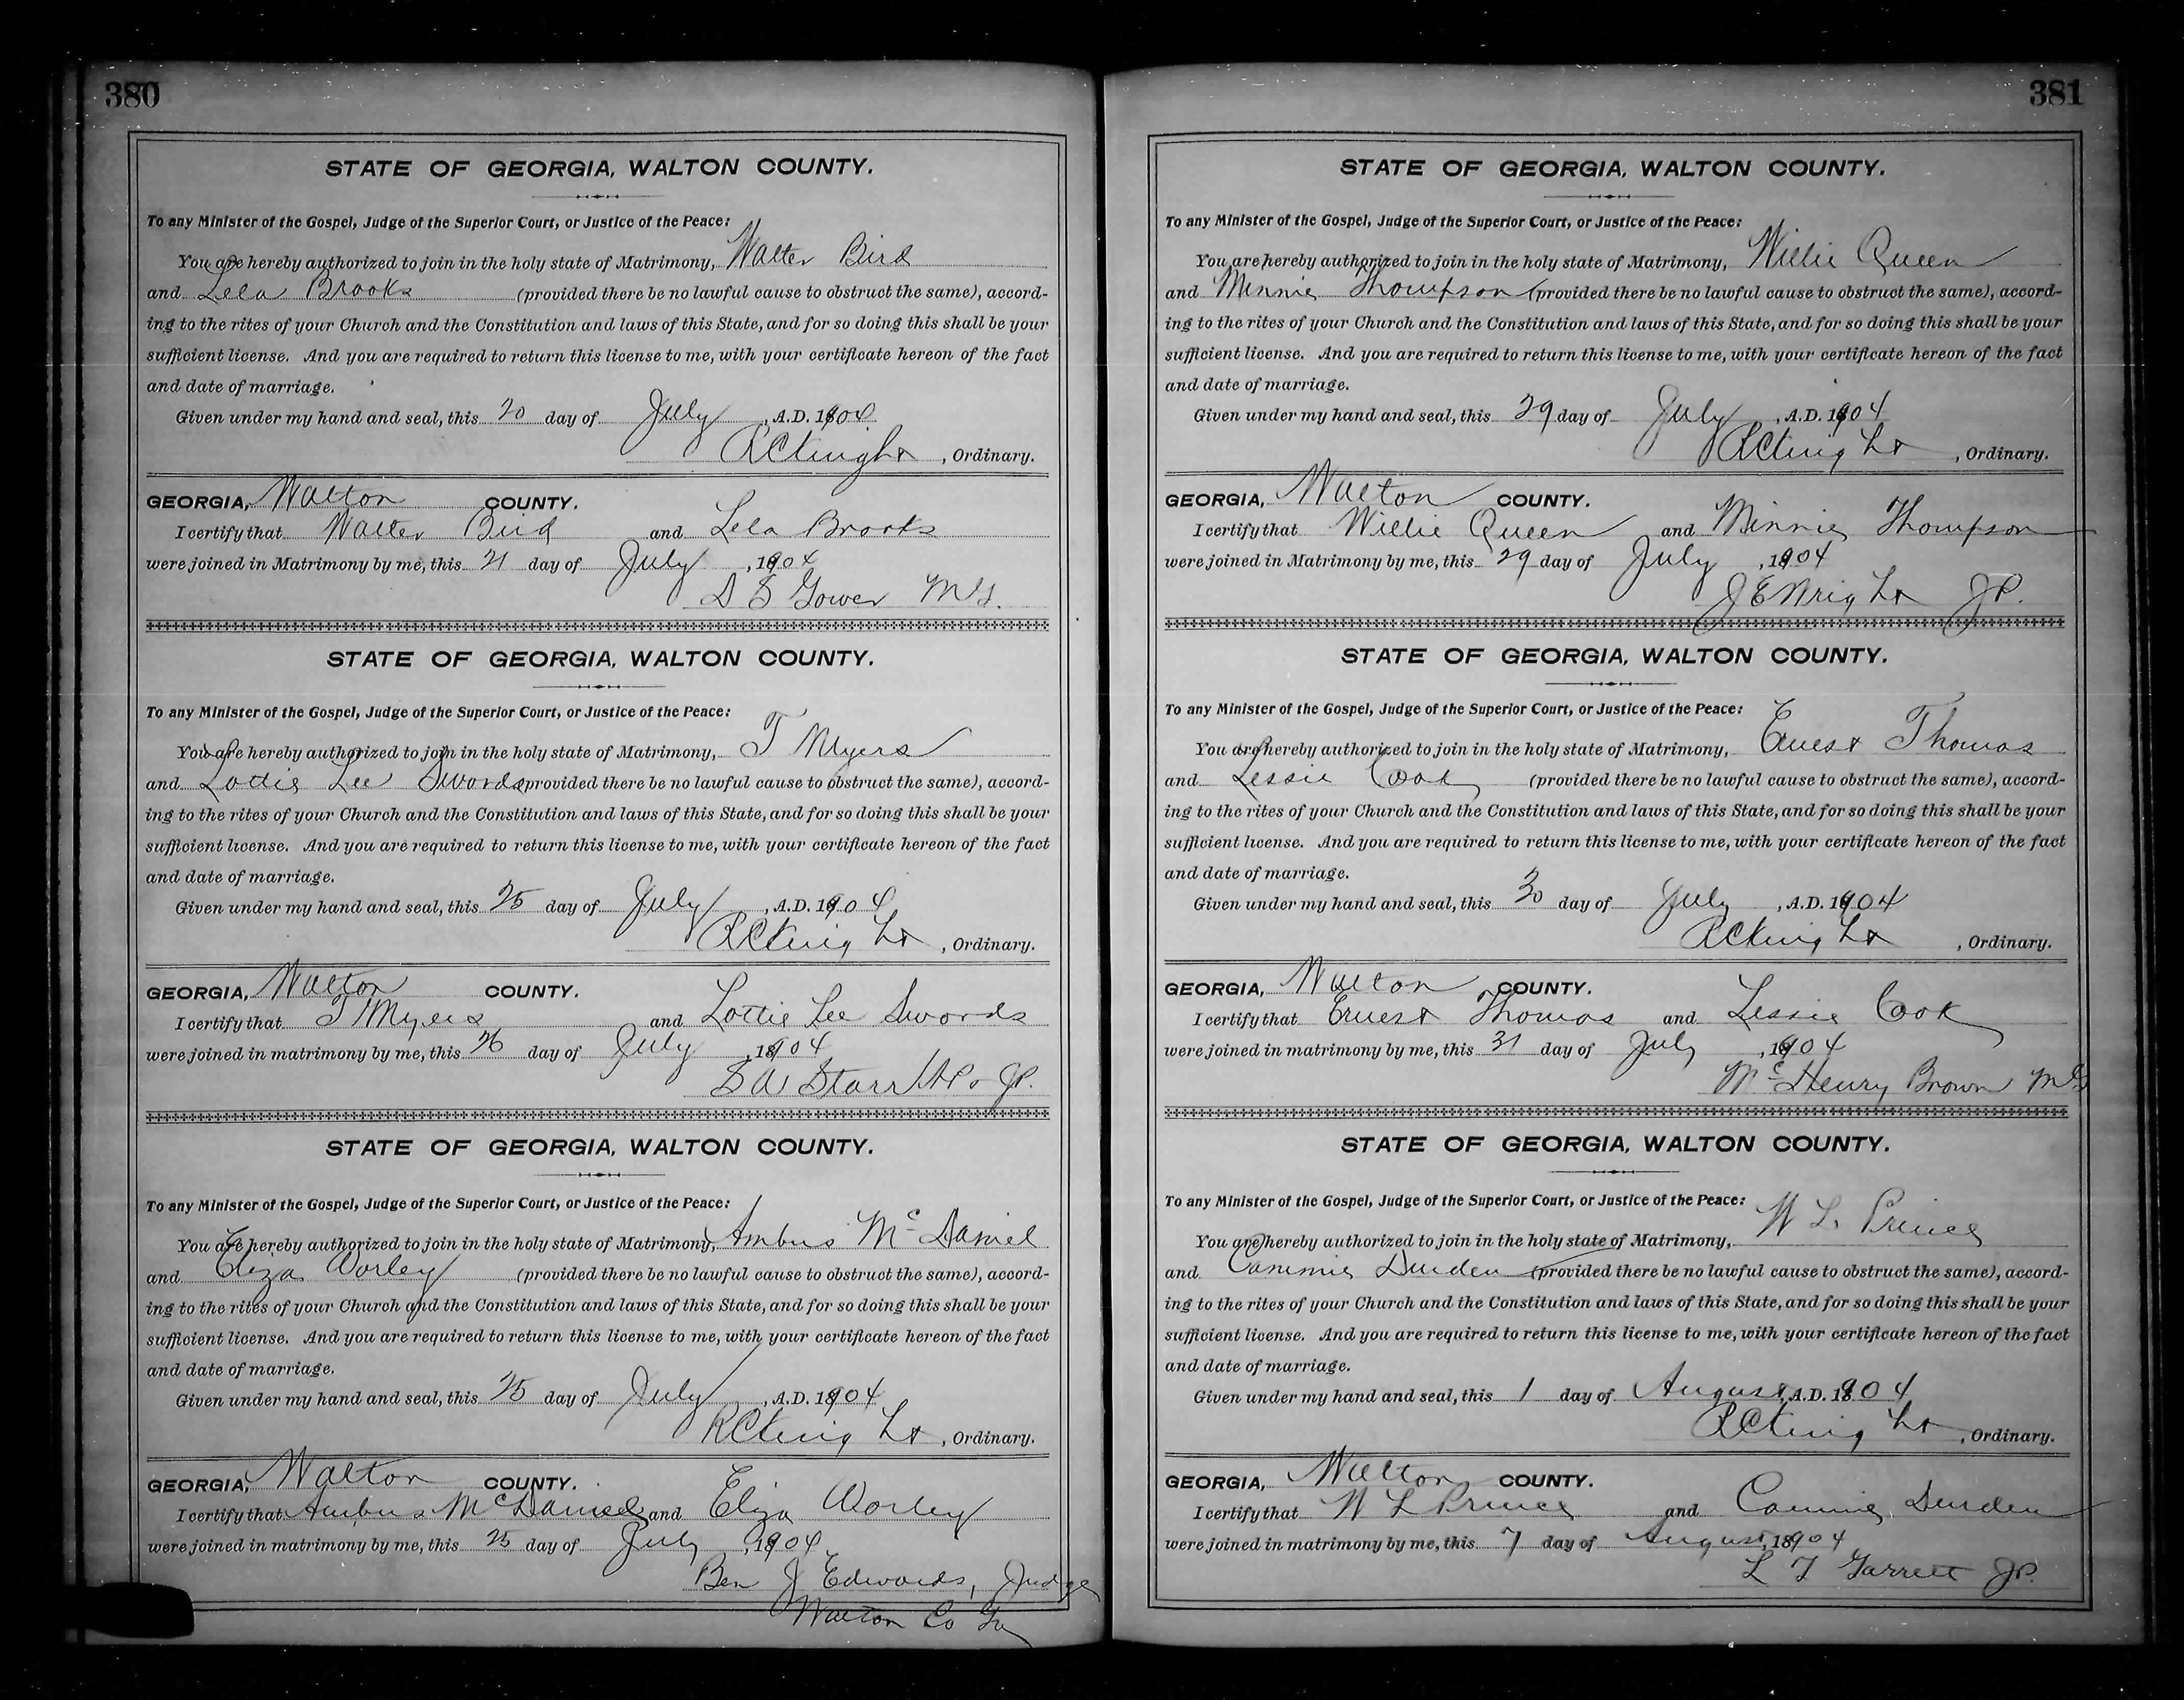 380
STATE OF GEORGIA, WALTON COUNTY.
To any Minister of the Gospel, Judge of the Superior Court, or Justice of the Peace:
You are hereby authorized to join in the holy state of Matrimony, Walter Bird
and Lela Brooks (provided there be no lawful cause to obstruct the same), accord-
ing to the rites of your Church and the Constitution and laws of this State, and for so doing this shall be your
sufficient license. And you are required to return this license to me, with your certificate hereon of the fact
and date of marriage.
Given under my hand and seal, this 20 day of July, A.D. 1904
, Ordinary.
GEORGIA, Walton COUNTY.
I certify that Walter Bird and Lela Brooks
were joined in Matrimony by me, this 21 day of July, 1904
S Gower MG.
STATE OF GEORGIA, WALTON COUNTY.
To any Minister of the Gospel, Judge of the Superior Court, or Justice of the Peace:
You are hereby authorized to join in the holy state of Matrimony, T Myers
and Lottie Lee Swords (provided there be no lawful cause to obstruct the same), accord-
ing to the rites of your Church and the Constitution and laws of this State, and for so doing this shall be your
sufficient license. And you are required to return this license to me, with your certificate hereon of the fact
and date of marriage.
Given under my hand and seal, this 25 day of July, A.D. 1904
, Ordinary.
GEORGIA, Walton COUNTY.
I certify that T Myers and Lottie Lee Swords
were joined in matrimony by me, this 26 day of July, 1904
Starr JP.
STATE OF GEORGIA, WALTON COUNTY.
To any Minister of the Gospel, Judge of the Superior Court, or Justice of the Peace:
You are hereby authorized to join in the holy state of Matrimony, Ambus McDaniel
and Eliza Worley (provided there be no lawful cause to obstruct the same), accord-
ing to the rites of your Church and the Constitution and laws of this State, and for so doing this shall be your
sufficient license. And you are required to return this license to me, with your certificate hereon of the fact
and date of marriage.
Given under my hand and seal, this 25 day of July, A.D. 1904
, Ordinary.
GEORGIA, Walton COUNTY.
I certify that Ambus McDaniel and Eliza Worley
were joined in matrimony by me, this 25 day of July, 1904
Ben J Edwards, Judge
Walton Co Ga
381
STATE OF GEORGIA, WALTON COUNTY.
To any Minister of the Gospel, Judge of the Superior Court, or Justice of the Peace:
You are hereby authorized to join in the holy state of Matrimony, Willie Queen
and Minnie Thompson (provided there be no lawful cause to obstruct the same), accord-
ing to the rites of your Church and the Constitution and laws of this State, and for so doing this shall be your
sufficient license. And you are required to return this license to me, with your certificate hereon of the fact
and date of marriage.
Given under my hand and seal, this 29 day of July, A.D. 1904
, Ordinary.
GEORGIA, Walton COUNTY.
I certify that Willie Queen and Minnie Thompson
were joined in Matrimony by me, this 29 day of July, 1904
J E Wright JP.
STATE OF GEORGIA, WALTON COUNTY.
To any Minister of the Gospel, Judge of the Superior Court, or Justice of the Peace:
You are hereby authorized to join in the holy state of Matrimony, Ernest Thomas
and Lessie Cook (provided there be no lawful cause to obstruct the same), accord-
ing to the rites of your Church and the Constitution and laws of this State, and for so doing this shall be your
sufficient license. And you are required to return this license to me, with your certificate hereon of the fact
and date of marriage.
Given under my hand and seal, this 30 day of July, A.D. 1904
, Ordinary.
GEORGIA, Walton COUNTY.
I certify that Ernest Thomas and Lessie Cook
were joined in matrimony by me, this 31 day of July, 1904
McHenry Brown MG
STATE OF GEORGIA, WALTON COUNTY.
To any Minister of the Gospel, Judge of the Superior Court, or Justice of the Peace:
You are hereby authorized to join in the holy state of Matrimony, W L Prince
and Cammie Durden (provided there be no lawful cause to obstruct the same), accord-
ing to the rites of your Church and the Constitution and laws of this State, and for so doing this shall be your
sufficient license. And you are required to return this license to me, with your certificate hereon of the fact
and date of marriage.
Given under my hand and seal, this 1 day of August, A.D. 1904
, Ordinary.
GEORGIA, Walton COUNTY.
I certify that W L Prince and Cammie Durden
were joined in matrimony by me, this 7 day of August, 1904
L T Garrett JP.